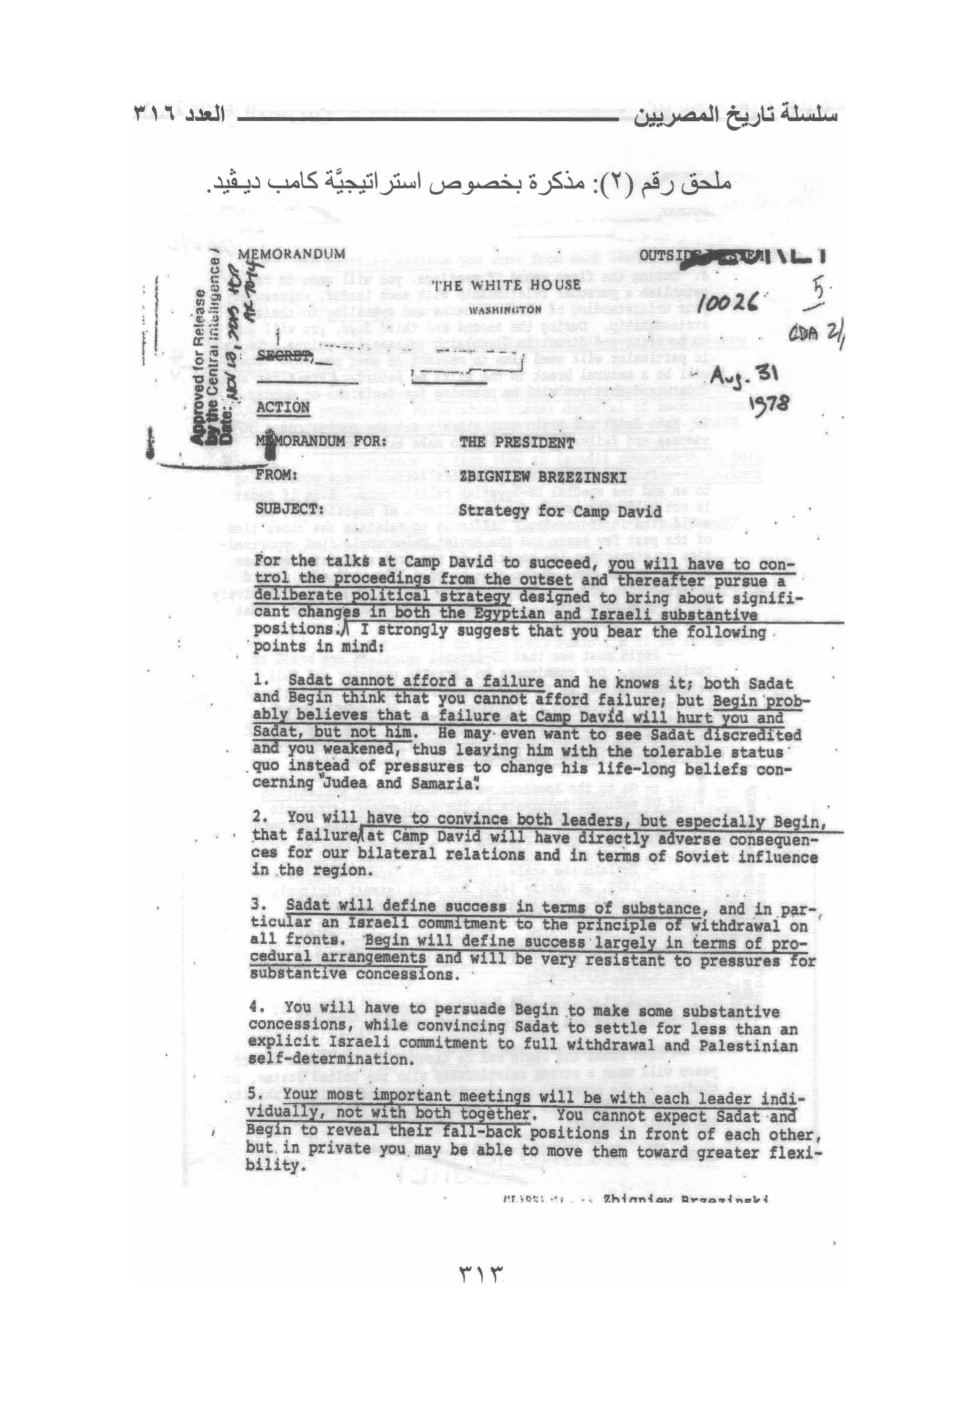 سلسلة تاريخ المصريين العدد ٣١٦
ملحق رقم (٢): مذكرة بخصوص استراتيجيَّة كامب ديڤيد.
MEMORANDUM OUTSIDE
THE WHITE HOUSE
WASHINGTON
10026
5
CDA 2/
Approved for Release
by the Central Intelligence
Date: NOV 13, 2013
SECRET
Aug. 31
1978
ACTION
MEMORANDUM FOR: THE PRESIDENT
FROM: ZBIGNIEW BRZEZINSKI
SUBJECT: Strategy for Camp David
For the talks at Camp David to succeed, you will have to con-
trol the proceedings from the outset and thereafter pursue a
deliberate political strategy designed to bring about signifi-
cant changes in both the Egyptian and Israeli substantive
positions. I strongly suggest that you bear the following
points in mind:
1. Sadat cannot afford a failure and he knows it; both Sadat
and Begin think that you cannot afford failure; but Begin prob-
ably believes that a failure at Camp David will hurt you and
Sadat, but not him. He may even want to see Sadat discredited
and you weakened, thus leaving him with the tolerable status
quo instead of pressures to change his life-long beliefs con-
cerning "Judea and Samaria".
2. You will have to convince both leaders, but especially Begin,
that failure at Camp David will have directly adverse consequen-
ces for our bilateral relations and in terms of Soviet influence
in the region.
3. Sadat will define success in terms of substance, and in par-
ticular an Israeli commitment to the principle of withdrawal on
all fronts. Begin will define success largely in terms of pro-
cedural arrangements and will be very resistant to pressures for
substantive concessions.
4. You will have to persuade Begin to make some substantive
concessions, while convincing Sadat to settle for less than an
explicit Israeli commitment to full withdrawal and Palestinian
self-determination.
5. Your most important meetings will be with each leader indi-
vidually, not with both together. You cannot expect Sadat and
Begin to reveal their fall-back positions in front of each other,
but in private you may be able to move them toward greater flexi-
bility.
Zbigniew Brzezinski
٣١٣